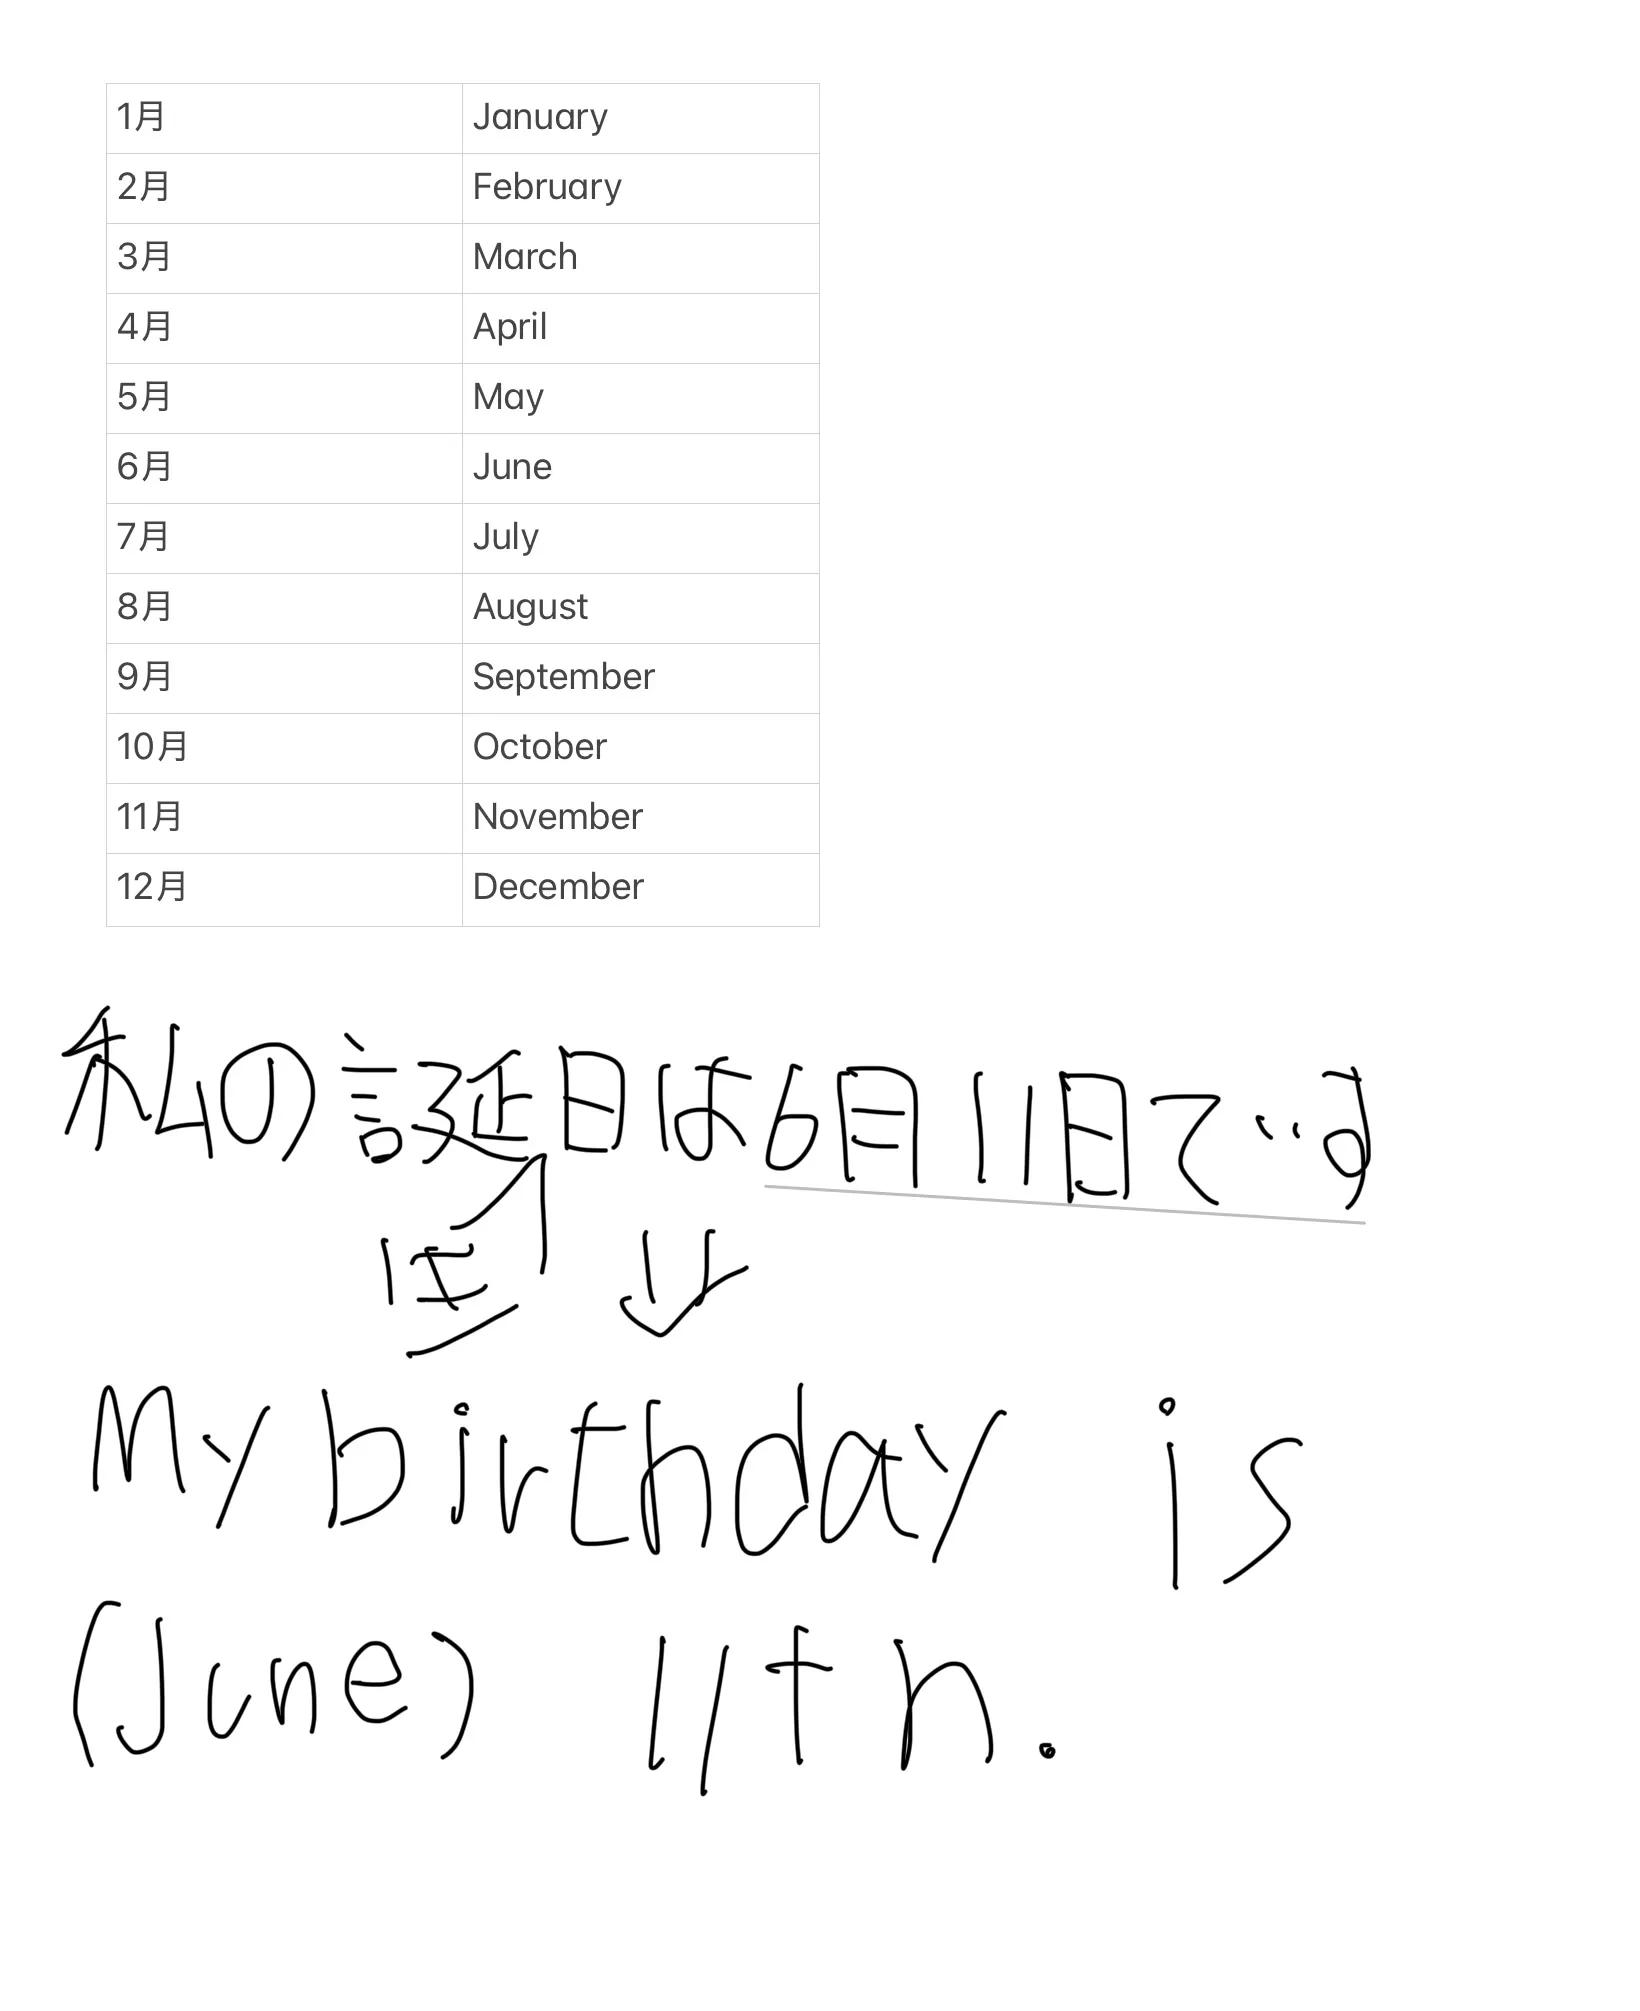 1月 January
2月 February
3月 March
4月 April
5月 May
6月 June
7月 July
8月 August
9月 September
10月 October
11月 November
12月 December
私の誕日は6月11日です
My birthday is
(June) 11th.